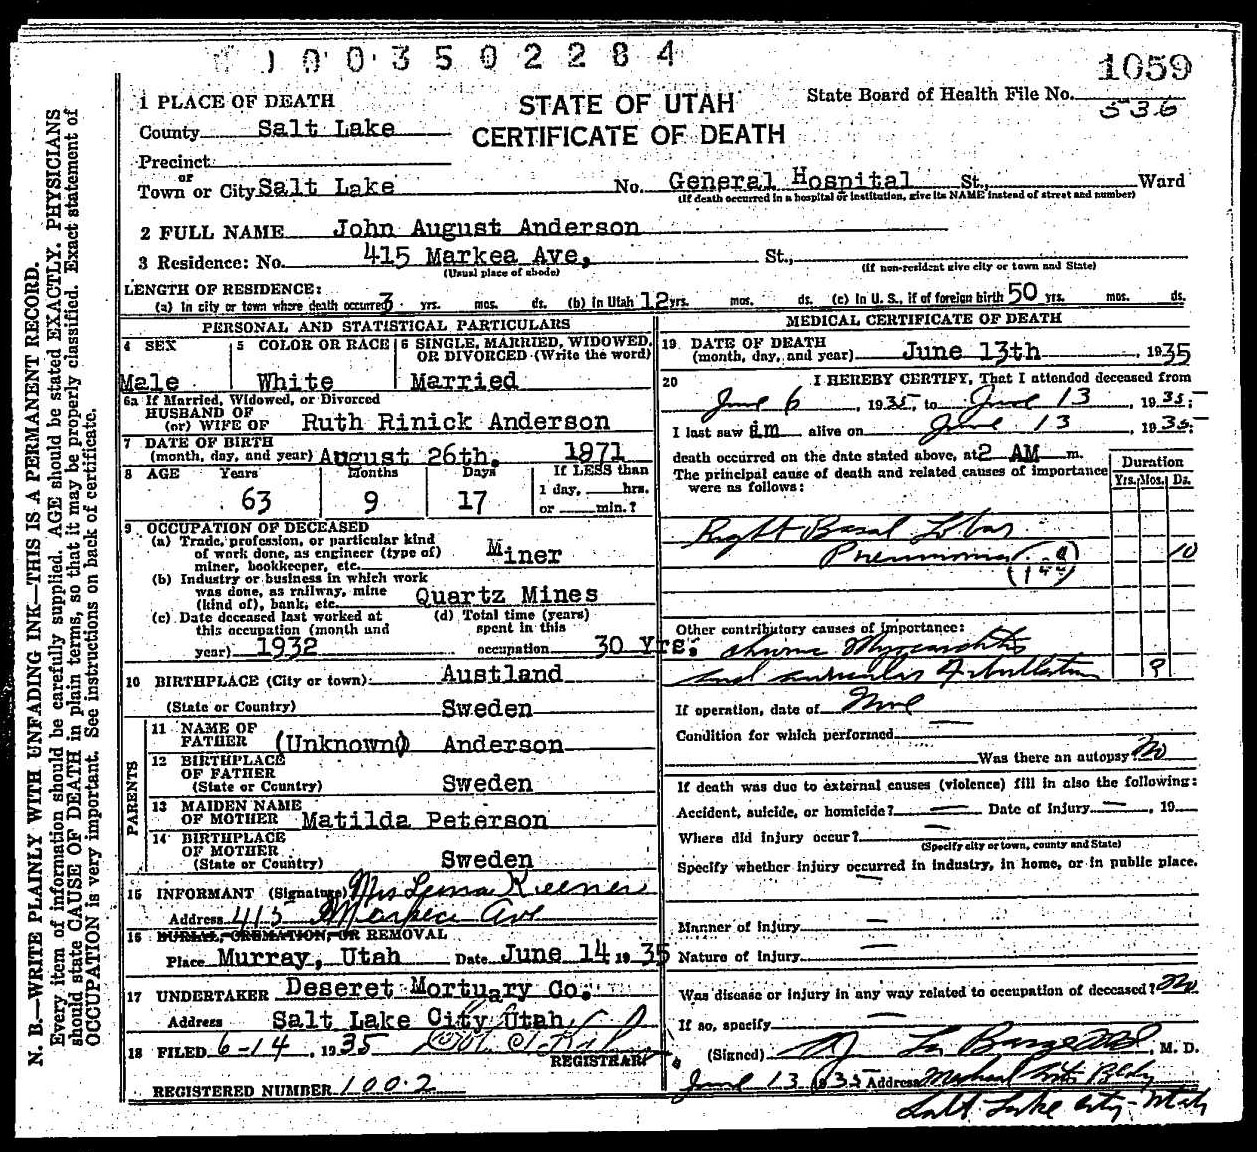 1003502284
1059
1 PLACE OF DEATH
STATE OF UTAH
CERTIFICATE OF DEATH
State Board of Health File No.
536
County Salt Lake
Precinct
or
Town or City Salt Lake No. General Hospital St., Ward
(If death occurred in a hospital or institution, give its NAME instead of street and number)
2 FULL NAME John August Anderson
3 Residence: No. 415 Markea Ave, St.,
(Usual place of abode) (If non-resident give city or town and State)
LENGTH OF RESIDENCE:
(a) In city or town where death occurred 3 yrs. mos. ds. (b) in Utah 12 yrs. mos. ds. (c) In U. S., if of foreign birth 50 yrs. mos. ds.
PERSONAL AND STATISTICAL PARTICULARS
4 SEX
Male
5 COLOR OR RACE
White
6 SINGLE, MARRIED, WIDOWED, OR DIVORCED (Write the word)
Married
6a If Married, Widowed, or Divorced
HUSBAND OF
(or) WIFE OF Ruth Rinick Anderson
7 DATE OF BIRTH
(month, day, and year) August 26th, 1871
8 AGE Years Months Days If LESS than
1 day, hrs.
63 9 17 or min.?
9 OCCUPATION OF DECEASED
(a) Trade, profession, or particular kind
of work done, as engineer (type of)
miner, bookkeeper, etc. Miner
(b) Industry or business in which work
was done, as railway, mine
(kind of), bank, etc. Quartz Mines
(c) Date deceased last worked at
this occupation (month and
year) 1932
(d) Total time (years)
spent in this
occupation 30 Yrs.
10 BIRTHPLACE (City or town) Austland
(State or Country) Sweden
PARENTS
11 NAME OF
FATHER (Unknown) Anderson
12 BIRTHPLACE
OF FATHER
(State or Country) Sweden
13 MAIDEN NAME
OF MOTHER Matilda Peterson
14 BIRTHPLACE
OF MOTHER
(State or Country) Sweden
15 INFORMANT (Signature) Mrs
Address 415 Markea Ave
16 BURIAL, CREMATION, OR REMOVAL
Place Murray, Utah Date June 14 1935
17 UNDERTAKER Deseret Mortuary Co.
Address Salt Lake City Utah
18 FILED 6-14, 1935
REGISTRAR
REGISTERED NUMBER 1002
MEDICAL CERTIFICATE OF DEATH
19 DATE OF DEATH
(month, day, and year) June 13th, 1935
20 I HEREBY CERTIFY, That I attended deceased from
June 6, 1935, to June 13, 1935;
I last saw im alive on June 13, 1935;
death occurred on the date stated above, at 2 AM m.
The principal cause of death and related causes of importance
were as follows:
Duration
Yrs. Mos. Ds.
Right Basal Lobar
Pneumonia 10
Other contributory causes of importance:
chronic Myocarditis
and auricular fibrillation ?
If operation, date of None
Condition for which performed
Was there an autopsy? No
If death was due to external causes (violence) fill in also the following:
Accident, suicide, or homicide? Date of injury 19
Where did injury occur?
(Specify city or town, county and State)
Specify whether injury occurred in industry, in home, or in public place.
Manner of injury
Nature of injury
Was disease or injury in any way related to occupation of deceased? No
If so, specify
(Signed) La Barge M.D., M. D.
June 13 1935 Address Bldg
Salt Lake City - Utah
N. B.—WRITE PLAINLY WITH UNFADING INK—THIS IS A PERMANENT RECORD.
Every item of information should be carefully supplied. AGE should be stated EXACTLY. PHYSICIANS
should state CAUSE OF DEATH in plain terms, so that it may be properly classified. Exact statement of
OCCUPATION is very important. See instructions on back of certificate.